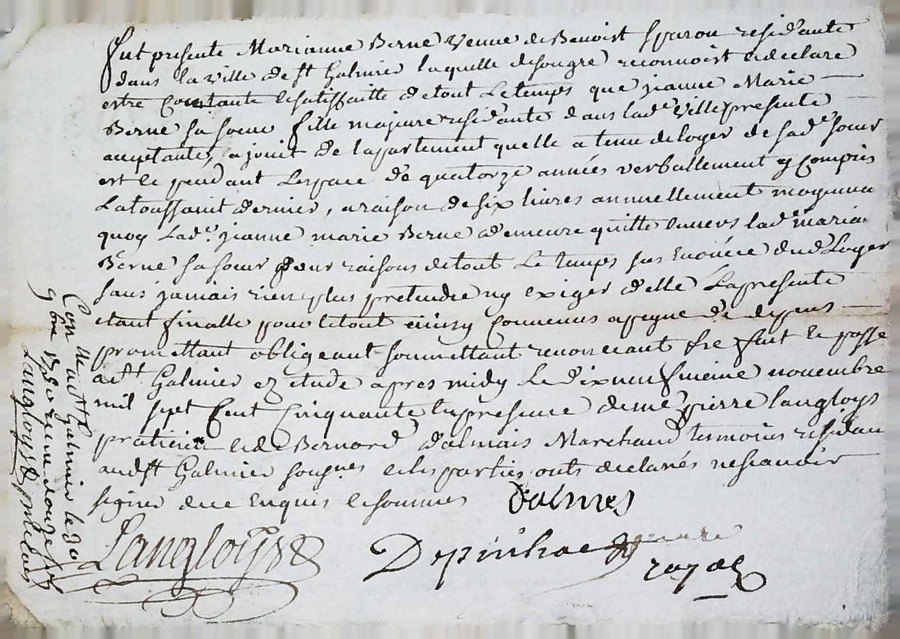 fut presente Marianne Berne Veuve de Benoist sparou residante
dans la ville de st Galmier laquelle de son gre reconnoist et declare
estre Contante et satisfaitte de tout Le temps que jeanne Marie
Berne sa soeur fille majeure residante dans lad.e Ville presente
acceptante, a jouit de lapartement quelle a tenu de loyer de sad.e soeur
et ce pendant Lespace de quatorze années verballement y Compris
La toussaint dernier, a raison de six livres annuellement moyenna
quoy Lad.e jeanne marie Berne a demeure quitte Envers lad.e maria
Berne sa soeur pour raisons de tout Le temps dud Loyer
sans jamais rien plus pretendre ny exiger d'elle La presente
etant finalle pour le tout ainsy Convenus a peyne de depens
promettant obligeant soumettant renonceant &re fait et passé
aud st Galmier ez etude apres midy Le dix neufvieme novembre
mil sept Cent Cinquante En presence de me pierre langloys
praticien et de Bernord dalmais Marchand temoins residan
aud st Galmier sousgnes et les parties onts declarés ne scavoir
signer de ce Enquis et sommes dalmes
Langloys
Depinhac
royal
Con.lle a st Galmier le 30
9bre 1750 recu douze s
Langloys